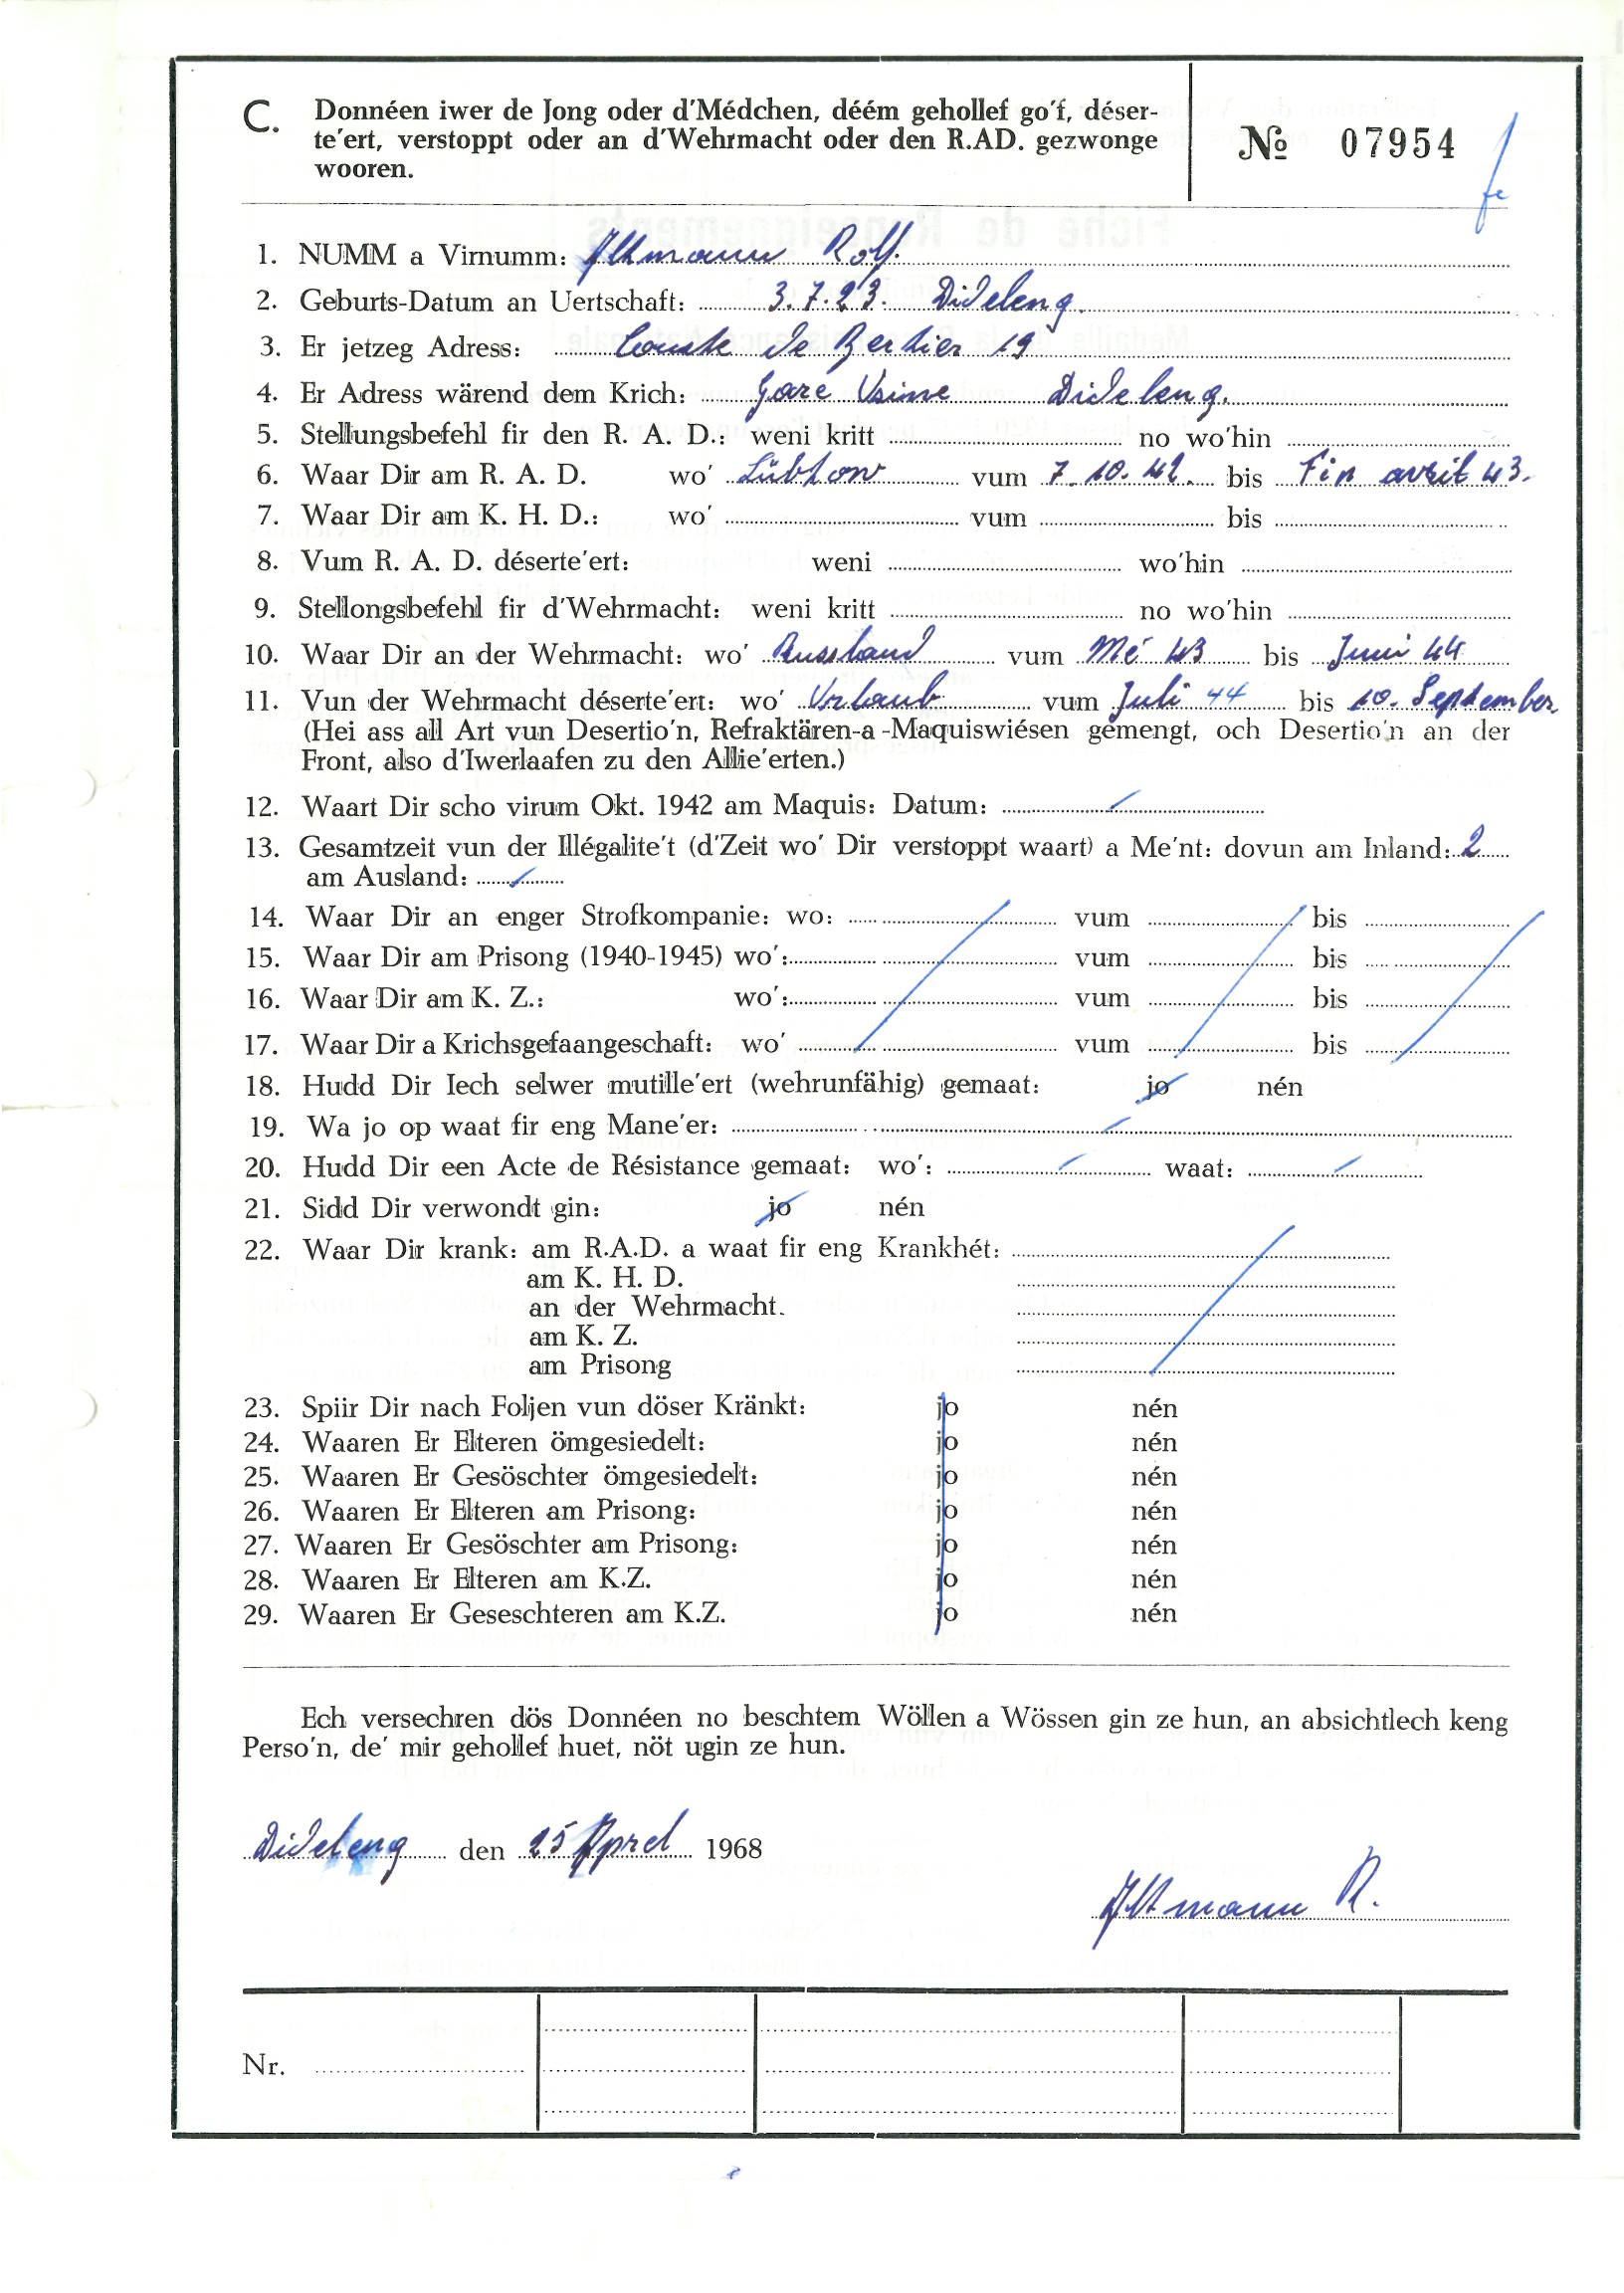 C. Donnéen iwer de Jong oder d'Médchen, déém gehollef go'f, déser-
te'ert, verstoppt oder an d'Wehrmacht oder den R.AD. gezwonge
wooren.
№ 07954
1. NUMM a Virnumm: Altmann Rolf.
2. Geburts-Datum an Uertschaft: 3.7.23. Dideleng.
3. Er jetzeg Adress: de Bertier 19
4. Er Adress wärend dem Krich: Gare Usine Dideleng.
5. Stellungsbefehl fir den R. A. D.: weni kritt no wo'hin
6. Waar Dir am R. A. D. wo' Lübtow vum 7.10.42. bis Fin avril 43.
7. Waar Dir am K. H. D.: wo' vum bis
8. Vum R. A. D. déserte'ert: weni wo'hin
9. Stellongsbefehl fir d'Wehrmacht: weni kritt no wo'hin
10. Waar Dir an der Wehrmacht: wo' Russland vum Mé 43 bis Juni 44
11. Vun der Wehrmacht déserte'ert: wo' Urlaub vum Juli 44 bis 10. September
(Hei ass all Art vun Desertio'n, Refraktären-a-Maquiswiésen gemengt, och Desertio'n an der
Front, also d'Iwerlaafen zu den Allie'erten.)
12. Waart Dir scho virum Okt. 1942 am Maquis: Datum:
13. Gesamtzeit vun der Illégalite't (d'Zeit wo' Dir verstoppt waart) a Me'nt: dovun am Inland: 2
am Ausland:
14. Waar Dir an enger Strofkompanie: wo: vum bis
15. Waar Dir am Prisong (1940-1945) wo': vum bis
16. Waar Dir am K. Z.: wo': vum bis
17. Waar Dir a Krichsgefaangeschaft: wo' vum bis
18. Hudd Dir Iech selwer mutille'ert (wehrunfähig) gemaat: jo nén
19. Wa jo op waat fir eng Mane'er:
20. Hudd Dir een Acte de Résistance gemaat: wo': waat:
21. Sidd Dir verwondt gin: jo nén
22. Waar Dir krank: am R.A.D. a waat fir eng Krankhét:
am K. H. D.
an der Wehrmacht.
am K. Z.
am Prisong
23. Spiir Dir nach Foljen vun döser Kränkt: jo nén
24. Waaren Er Elteren ömgesiedelt: jo nén
25. Waaren Er Gesöschter ömgesiedelt: jo nén
26. Waaren Er Elteren am Prisong: jo nén
27. Waaren Er Gesöschter am Prisong: jo nén
28. Waaren Er Elteren am K.Z. jo nén
29. Waaren Er Geseschteren am K.Z. jo nén
Ech versechren dös Donnéen no beschtem Wöllen a Wössen gin ze hun, an absichtlech keng
Perso'n, de' mir gehollef huet, nöt ugin ze hun.
Dideleng den 25 Aprel 1968
Altmann R.
Nr.